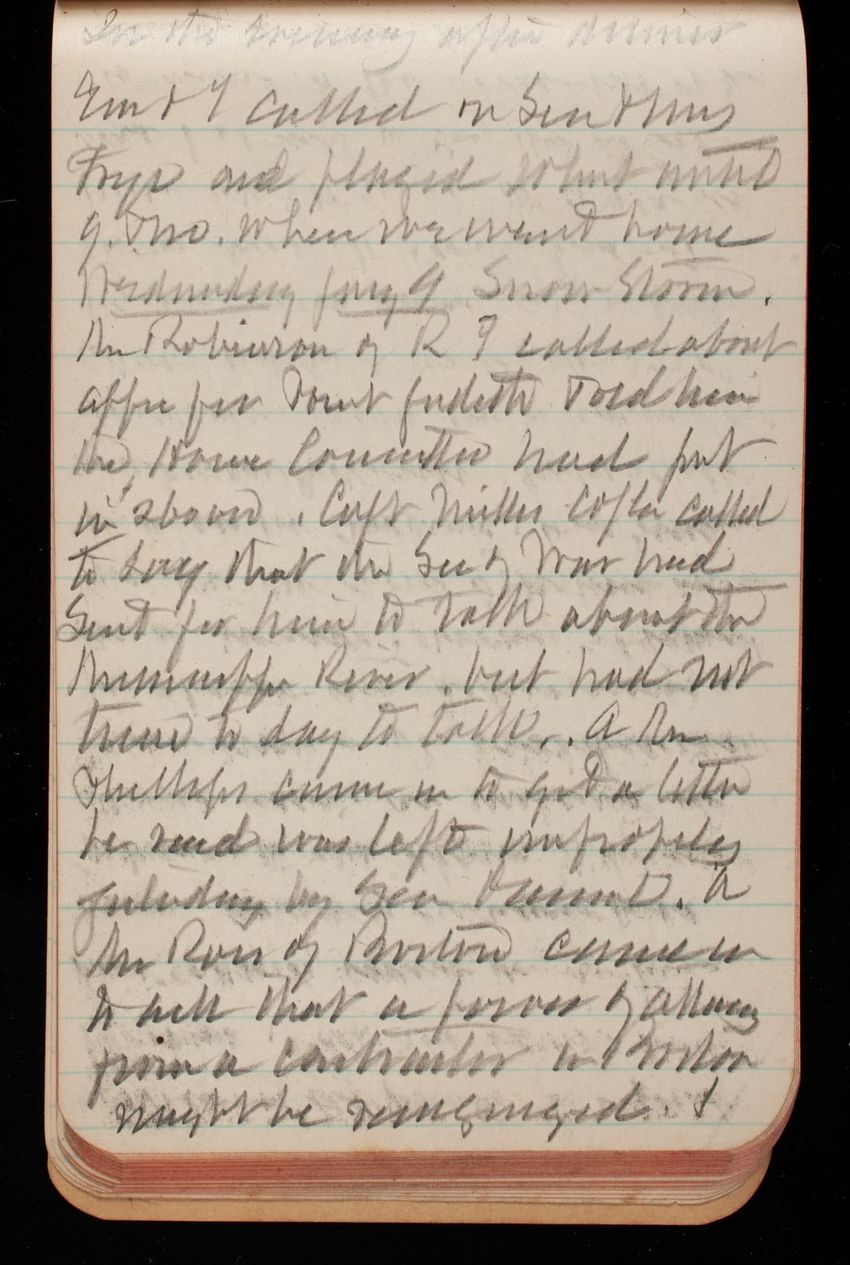 In the evening after dinner
Em & I called on Sen & Mrs
Frye and played Whist until
9. when we went home
Wednesday Jany 9 Snow Storm.
Mr Robinson of R I called about
appr for Point Judith Told him
the House Committee had put
in above. Capt Miller CofE called
to say that the Sec of War had
Sent for him to talk about the
Mississippi River, but had not
time to day to talk. A Mr
Phillips came in to get a letter
he said was left
by Gen A
Mr Ross of Boston came in
to ask that a of
from a contractor in Boston
might be &